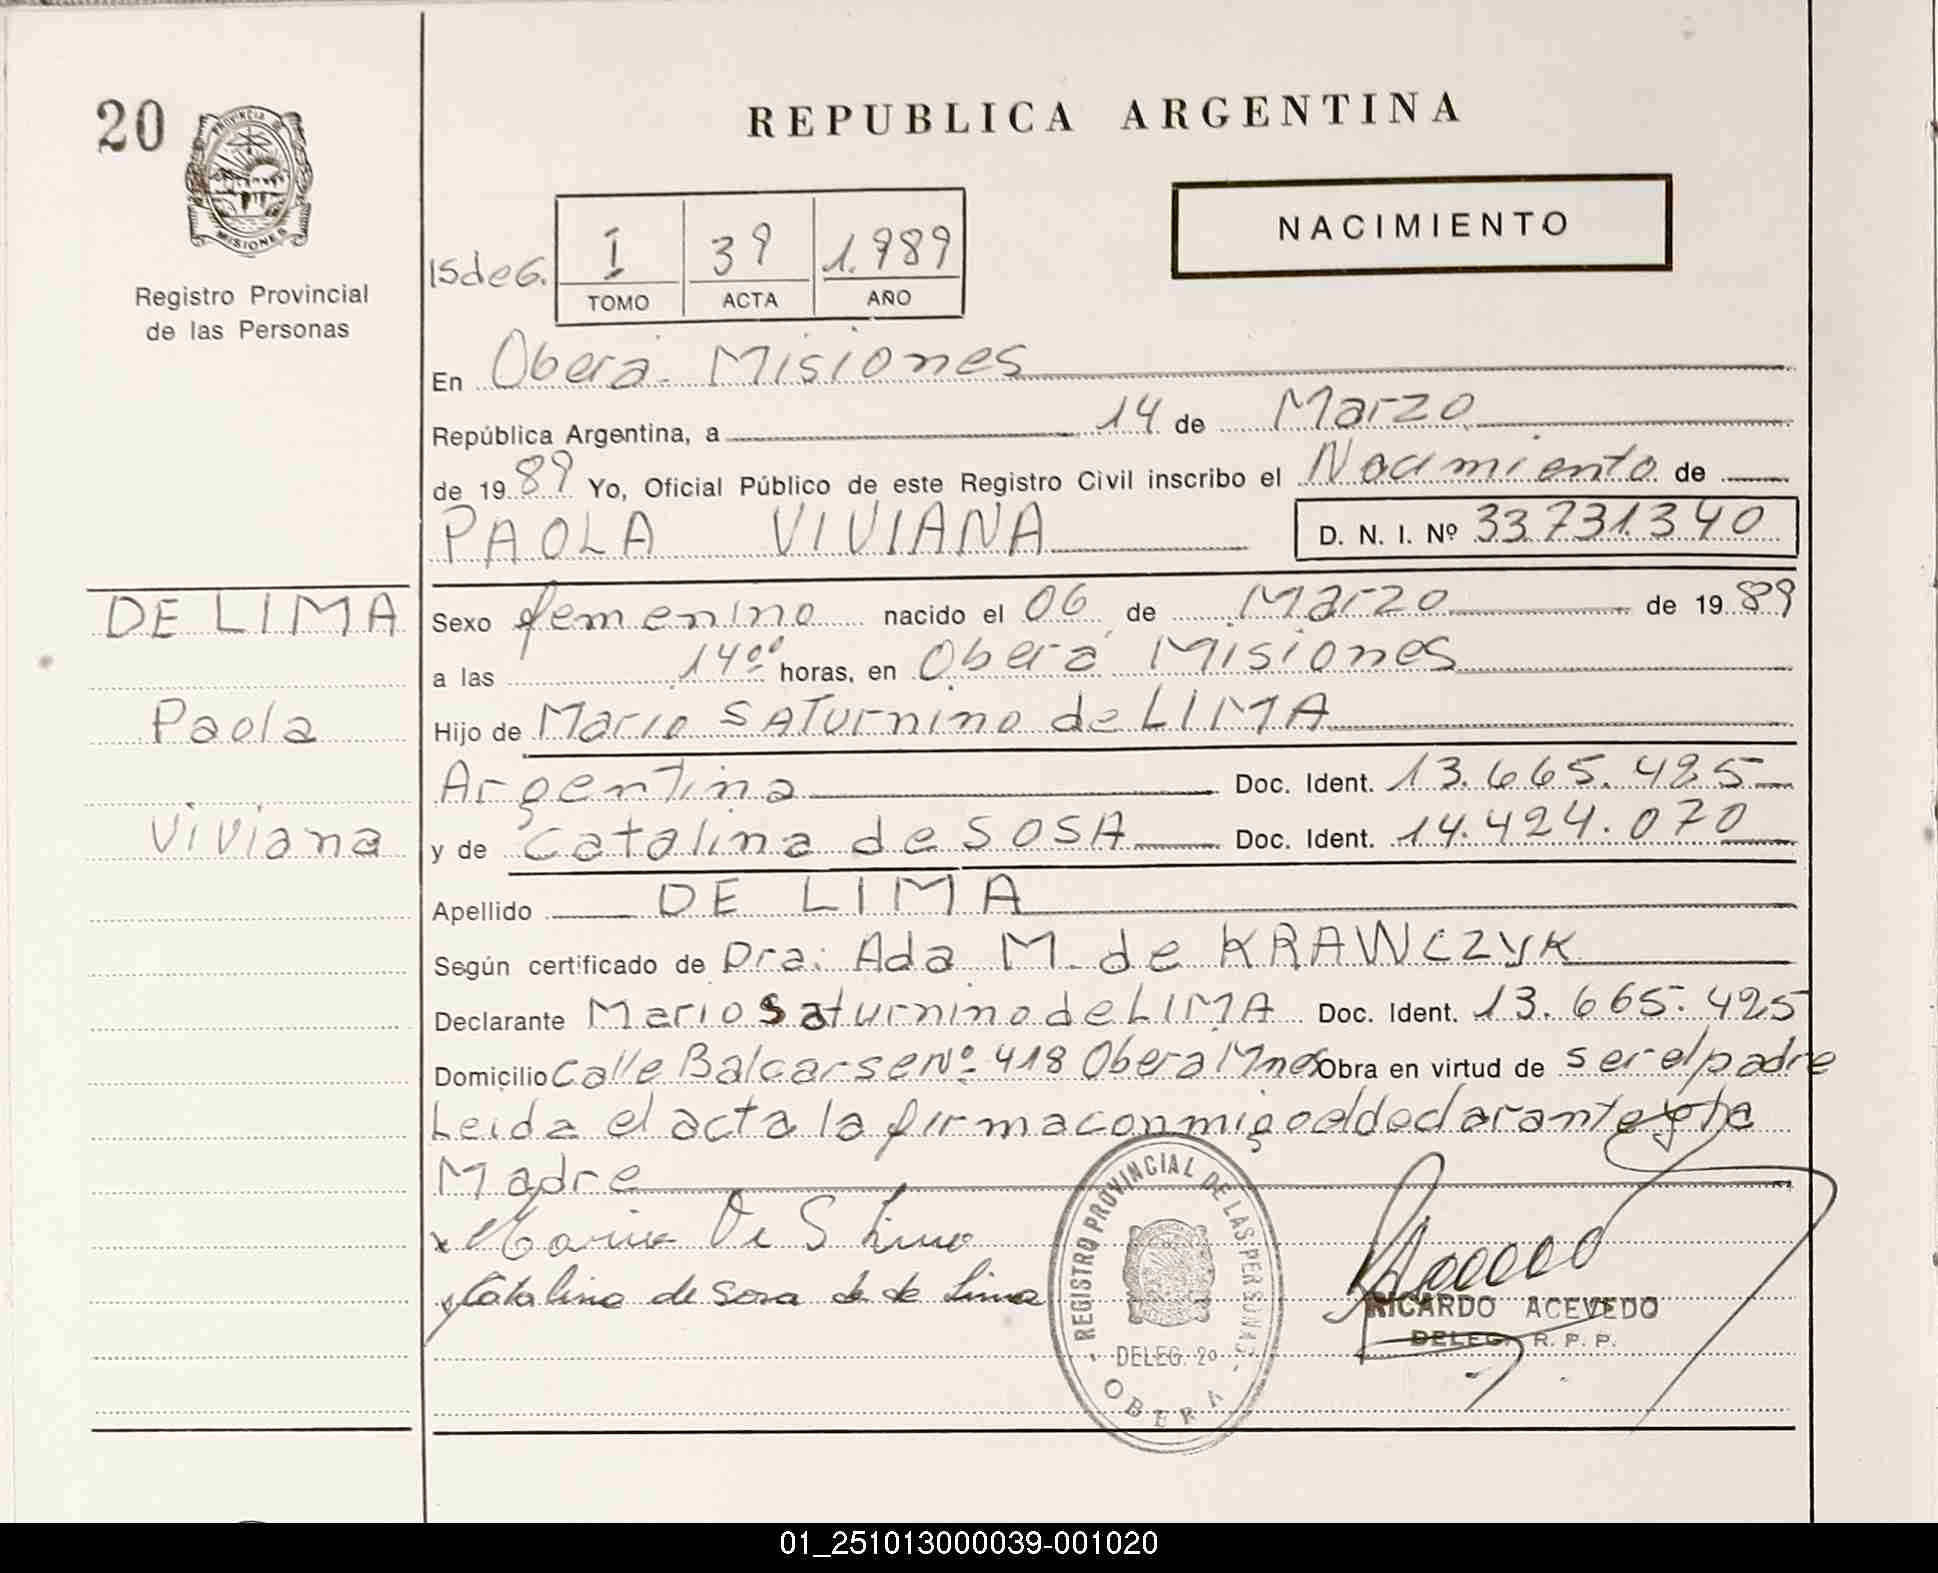 20
PROVINCIA DE
MISIONES
Registro Provincial
de las Personas
REPUBLICA ARGENTINA
NACIMIENTO
15 de G. I 39 1.989
TOMO ACTA AÑO
En Oberá - Misiones
República Argentina, a 14 de Marzo
de 1989 Yo, Oficial Público de este Registro Civil inscribo el Nacimiento de
PAOLA VIVIANA D. N. I. Nº 33.731.340
DE LIMA
Paola
Viviana
Sexo femenino nacido el 06 de Marzo de 1989
a las 14ºº horas, en Oberá Misiones
Hijo de Mario SATurnino de LIMA
Argentina Doc. Ident. 13.665.425
y de Catalina de SOSA Doc. Ident. 14.424.070
Apellido DE LIMA
Según certificado de Dra: Ada M. de KRAWCZYK
Declarante Mario Saturnino de LIMA Doc. Ident. 13.665.425
Domicilio Calle Balcarse Nº 418 Obera Mnes Obra en virtud de ser el padre
Leida el acta la firma conmigo el declarante y la
Madre
x Mario De S Lima
x Catalina de Sosa de de Lima
REGISTRO PROVINCIAL DE LAS PERSONAS
DELEG. 2º
OBERA
RICARDO ACEVEDO
DELEG. R. P. P.
01_251013000039-001020